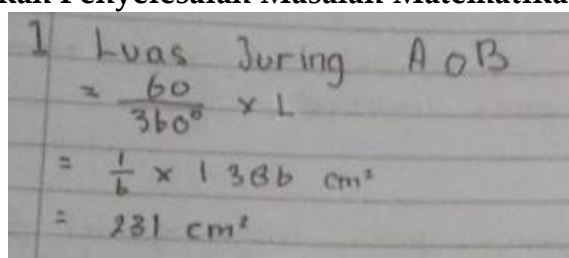 kan Penyelesaian Masalah Matematika
1 Luas Juring AOB
= 60/360° × L
= 1/6 × 1386 cm²
= 231 cm²